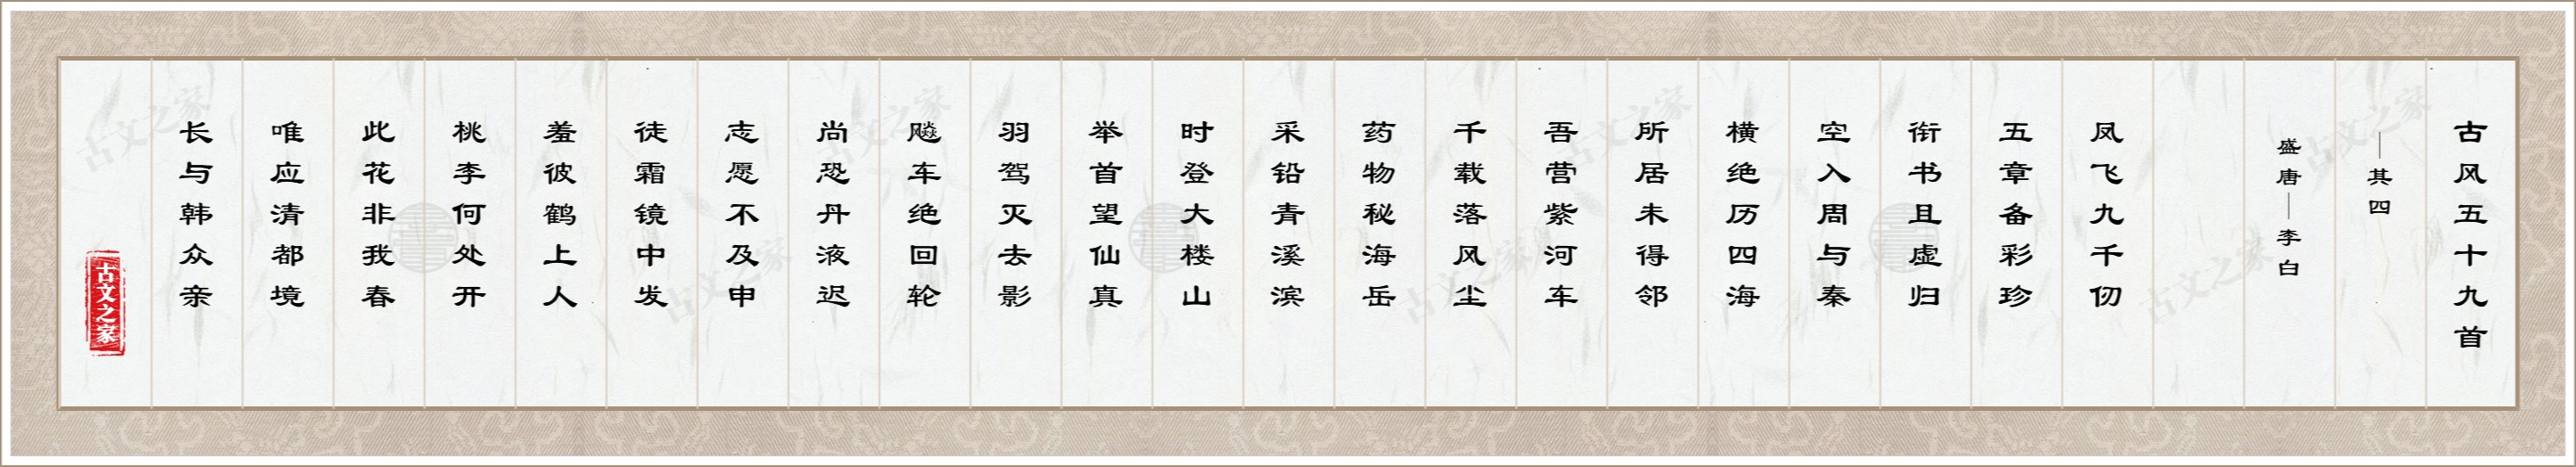 古风五十九首
—其四
盛唐—李白
凤飞九千仞
五章备彩珍
衔书且虚归
空入周与秦
横绝历四海
所居未得邻
吾营紫河车
千载落风尘
药物秘海岳
采铅青溪滨
时登大楼山
举首望仙真
羽驾灭去影
飚车绝回轮
尚恐丹液迟
志愿不及申
徒霜镜中发
羞彼鹤上人
桃李何处开
此花非我春
唯应清都境
长与韩众亲
古文之家